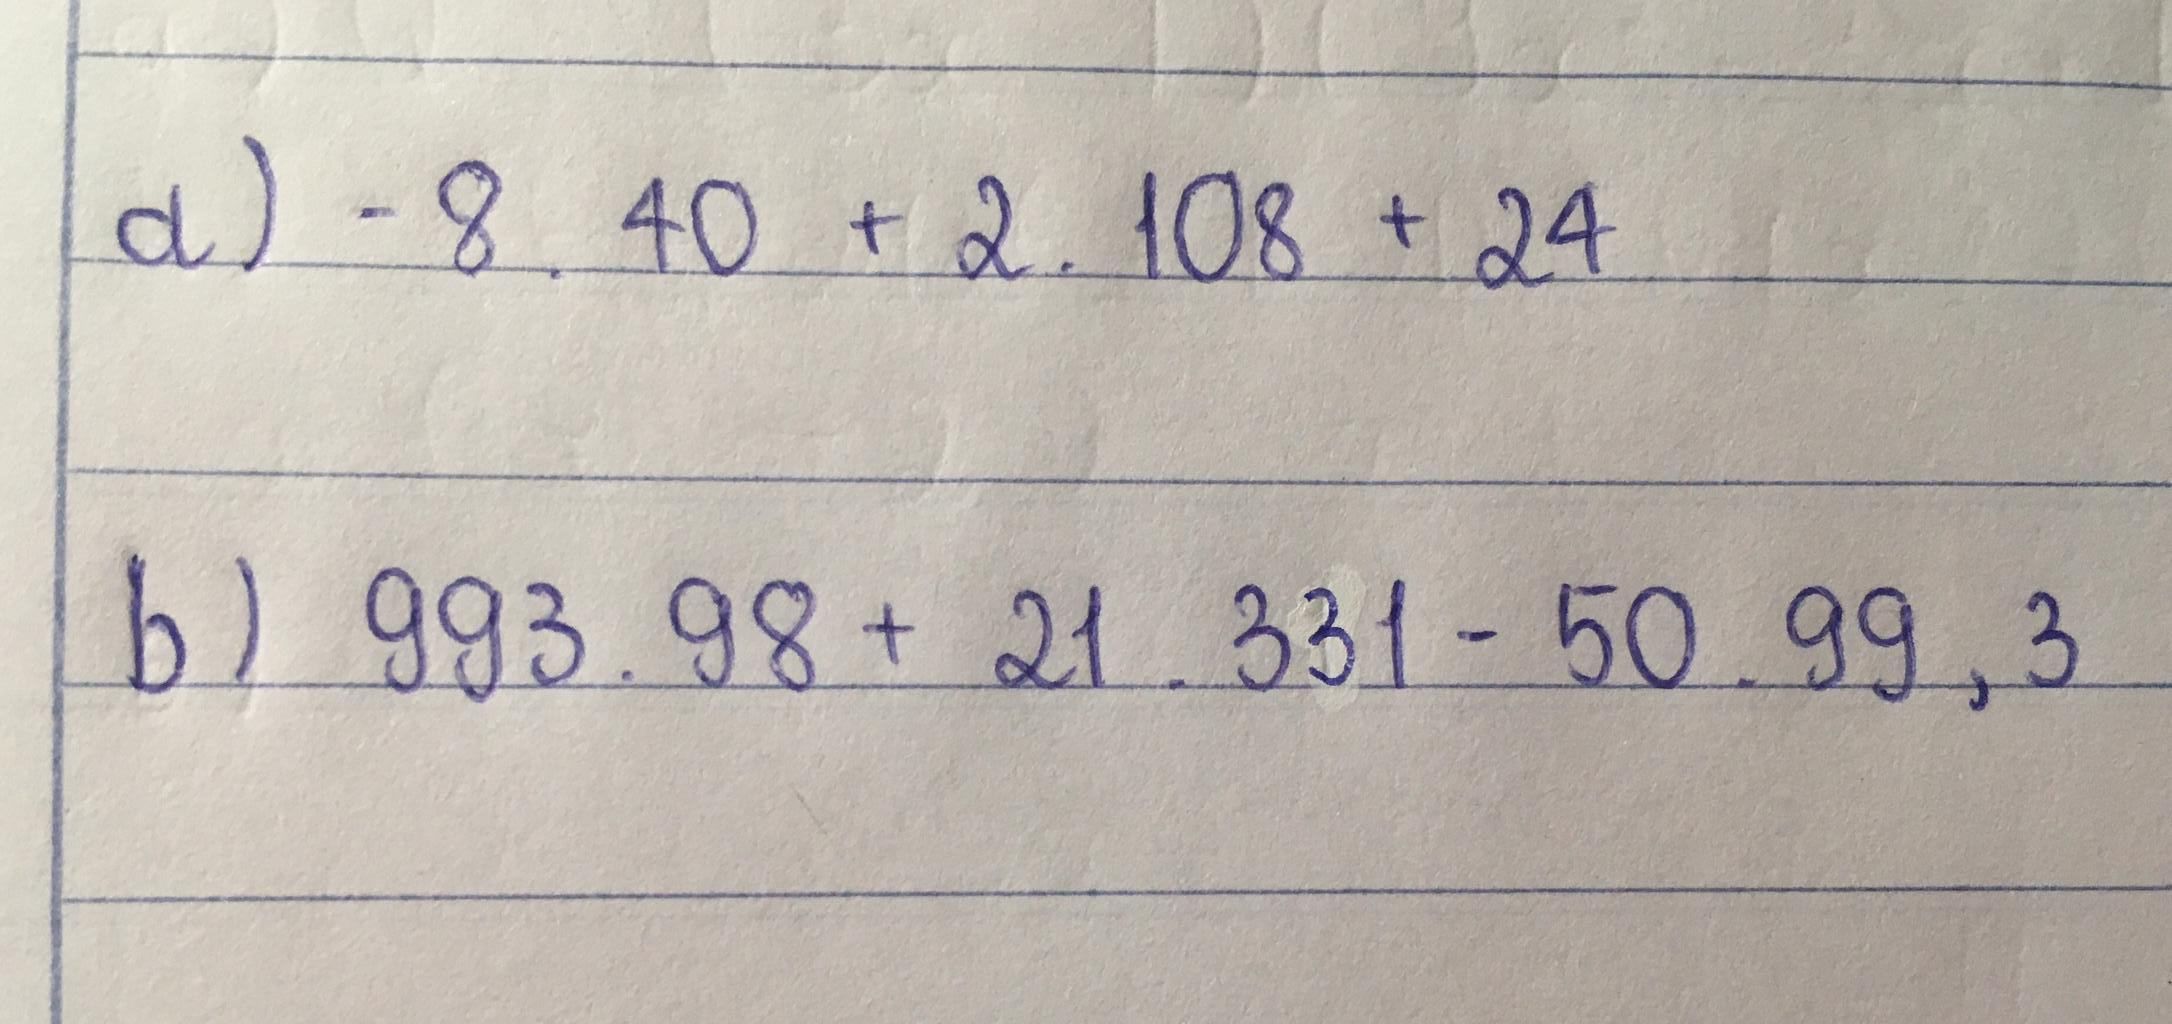 a) - 8. 40 + 2. 108 + 24
b) 993. 98 + 21. 331 - 50. 99,3